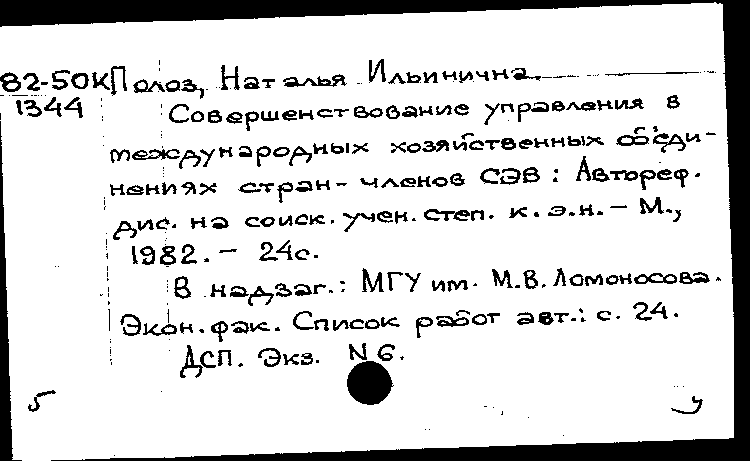 82-50К Полоз, Наталья Ильинична.
1344 Совершенствование управления в
международных хозяйственных объеди-
нениях стран-членов СЭВ: Автореф.
дис. на соиск. учен. степ. к.э.н. – М.,
1982. – 24с.
В надзаг.: МГУ им. М.В. Ломоносова.
Экон. фак. Список работ авт.: с. 24.
ДСП. Экз. N 6.
5